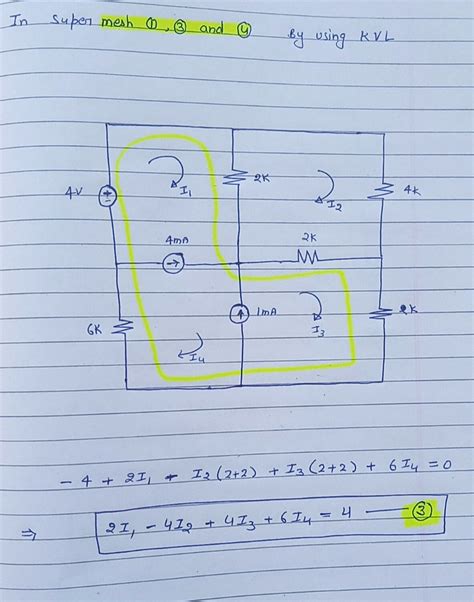 In super mesh ①, ③ and ④ By using KVL
4V
I₁
2K
I₂
4K
4mA
2K
6K
I₄
1mA
I₃
2K
- 4 + 2I₁ - I₂(2+2) + I₃(2+2) + 6I₄ = 0
⇒ 2I₁ - 4I₂ + 4I₃ + 6I₄ = 4 — ③